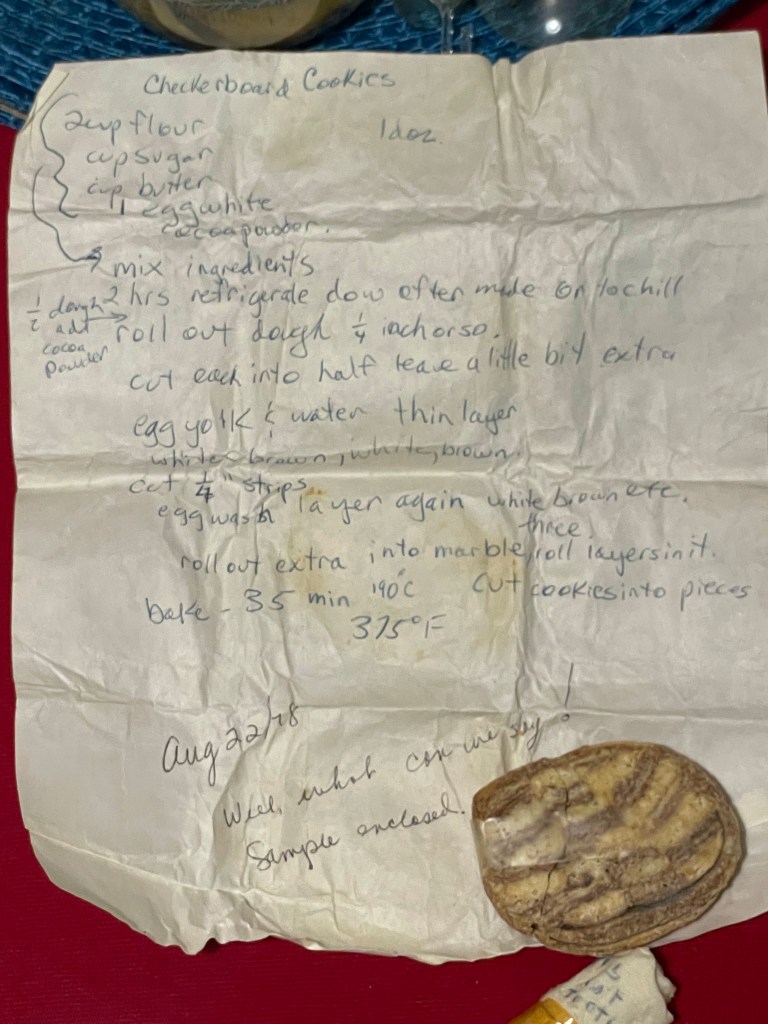 Checkerboard Cookies
2cup flour
1doz.
cup sugar
cup butter
1 egg white
cocoa powdor.
mix ingredients
2 hrs refrigerate dow often made or to chill
1/2 dough
add
cocoa
Powder
roll out dough 1/4 inch or so.
cut each into half leave a little bit extra
egg yolk & water thin layer
white brown, white, brown.
cut 1/4" strips
egg wash layer again white brown etc.
three.
roll out extra into marble, roll layers in it.
cut cookies into pieces
bake - 35 min 190°C
375°F
Aug 22/78
Well, what can we say!
Sample enclosed.